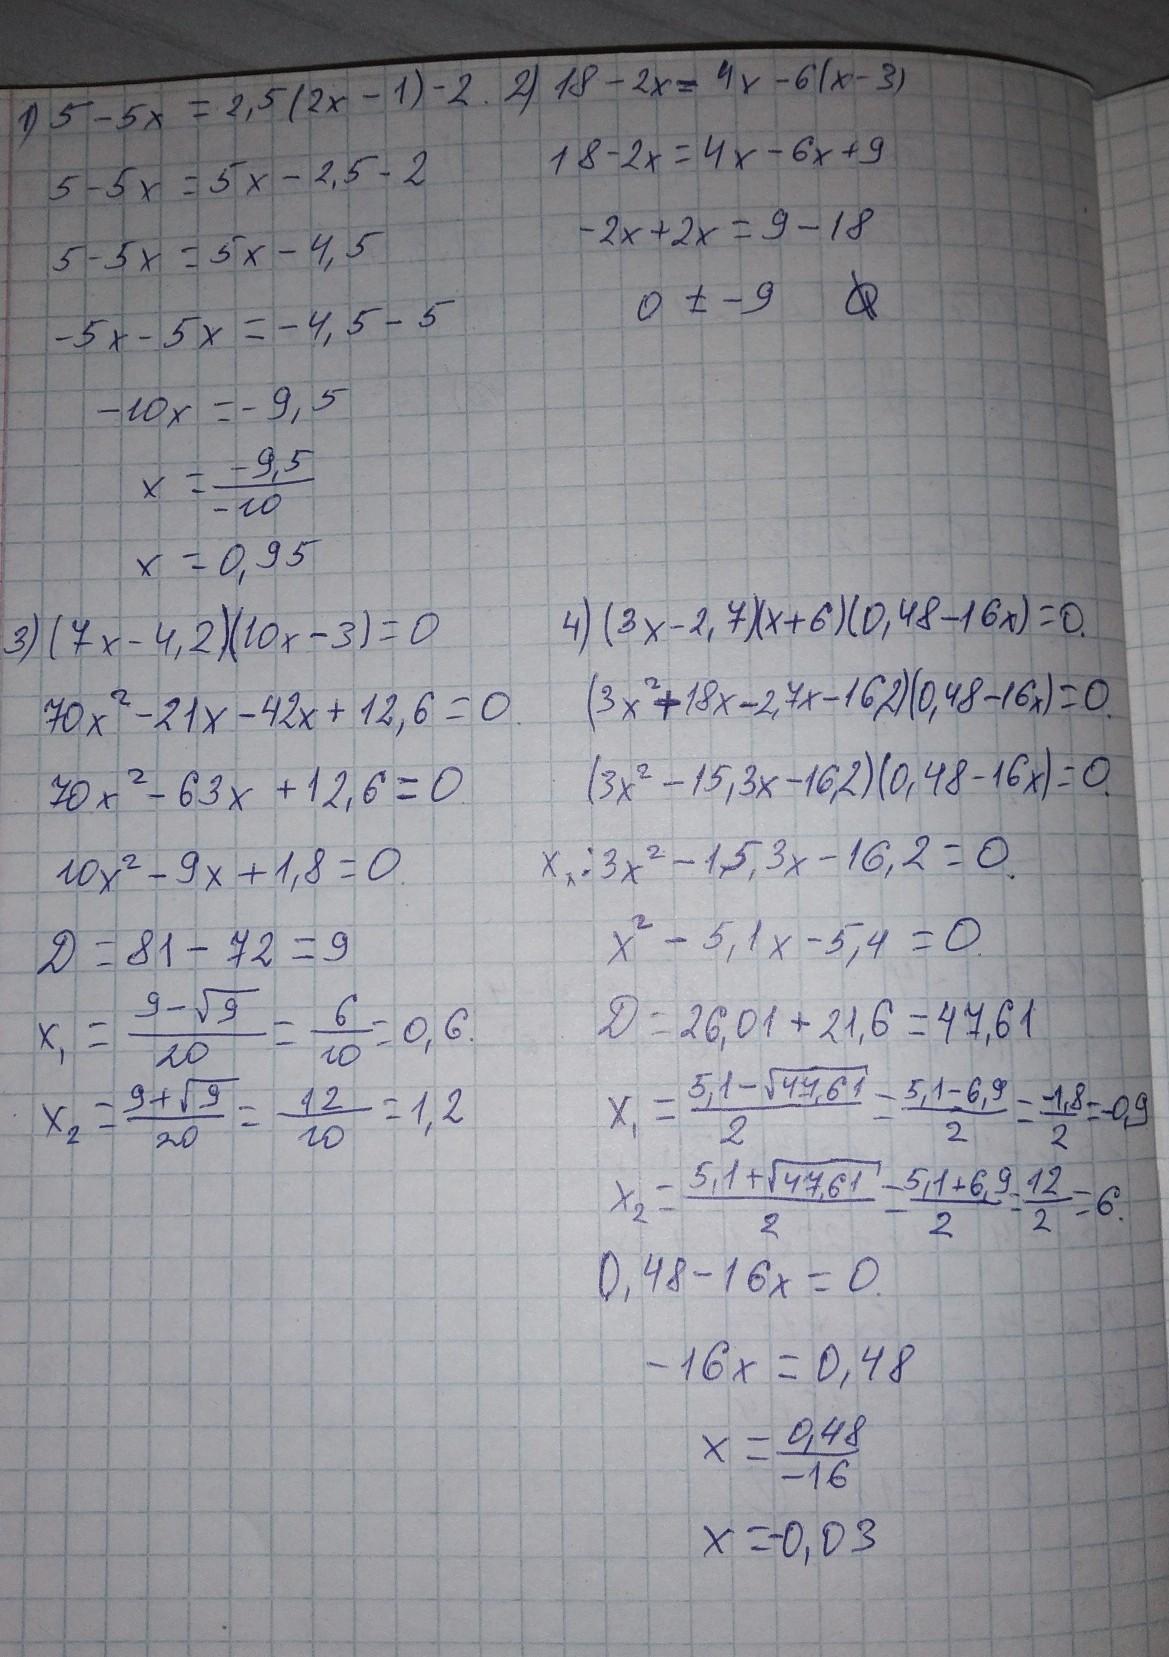 1) 5 - 5x = 2,5(2x - 1) - 2.
5 - 5x = 5x - 2,5 - 2
5 - 5x = 5x - 4,5
-5x - 5x = -4,5 - 5
-10x = -9,5
x = -9,5/-10
x = 0,95
2) 18 - 2x = 4x - 6(x - 3)
18 - 2x = 4x - 6x + 9
-2x + 2x = 9 - 18
0 ≠ -9
3) (7x - 4,2)(10x - 3) = 0
70x² - 21x - 42x + 12,6 = 0.
70x² - 63x + 12,6 = 0
10x² - 9x + 1,8 = 0.
D = 81 - 72 = 9
x₁ = (9 - √9)/20 = 6/10 = 0,6.
x₂ = (9 + √9)/20 = 12/10 = 1,2
4) (3x - 2,7)(x + 6)(0,48 - 16x) = 0.
(3x² + 18x - 2,7x - 16,2)(0,48 - 16x) = 0.
(3x² - 15,3x - 16,2)(0,48 - 16x) = 0.
x₁: 3x² - 15,3x - 16,2 = 0.
x² - 5,1x - 5,4 = 0.
D = 26,01 + 21,6 = 47,61
x₁ = (5,1 - √47,61)/2 = (5,1 - 6,9)/2 = -1,8/2 = -0,9
x₂ = (5,1 + √47,61)/2 = (5,1 + 6,9)/2 = 12/2 = 6.
0,48 - 16x = 0.
-16x = 0,48
x = 0,48/-16
x = -0,03